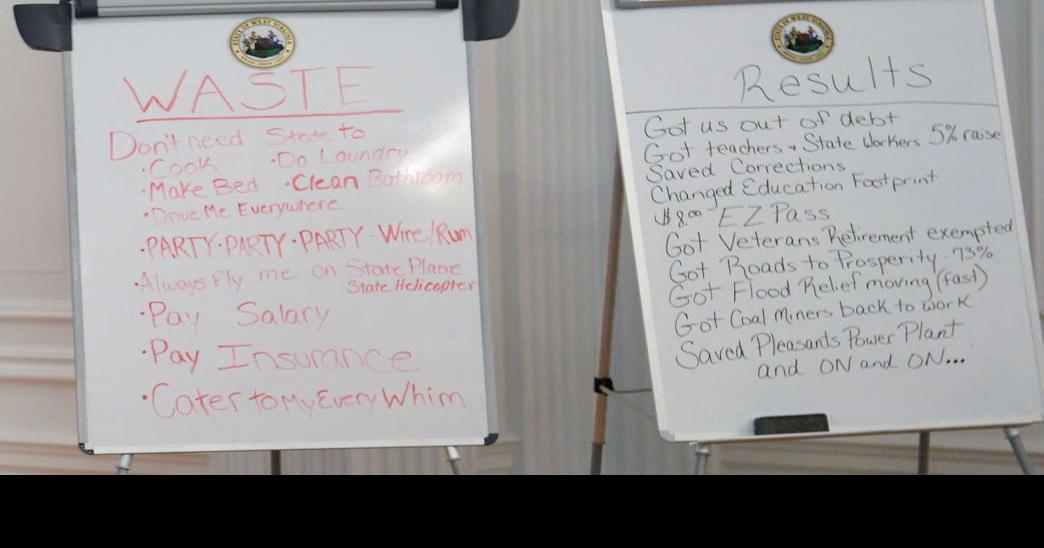 STATE OF WEST VIRGINIA
WASTE
Don't need State to
·Cook ·Do Laundry
·Make Bed ·Clean Bathroom
·Drive Me Everywhere
·PARTY·PARTY·PARTY-Wine/Rum
·Always Fly me on State Plane
State Helicopter
·Pay Salary
·Pay Insurance
·Cater to My Every Whim
STATE OF WEST VIRGINIA
Results
Got us out of debt
Got teachers + State Workers 5% raise
Saved Corrections
Changed Education Footprint
$8.00 EZ Pass
Got Veterans Retirement exempted
Got Roads to Prosperity. 73%
Got Flood Relief moving (fast)
Got Coal Miners back to work
Saved Pleasants Power Plant
and ON and ON...